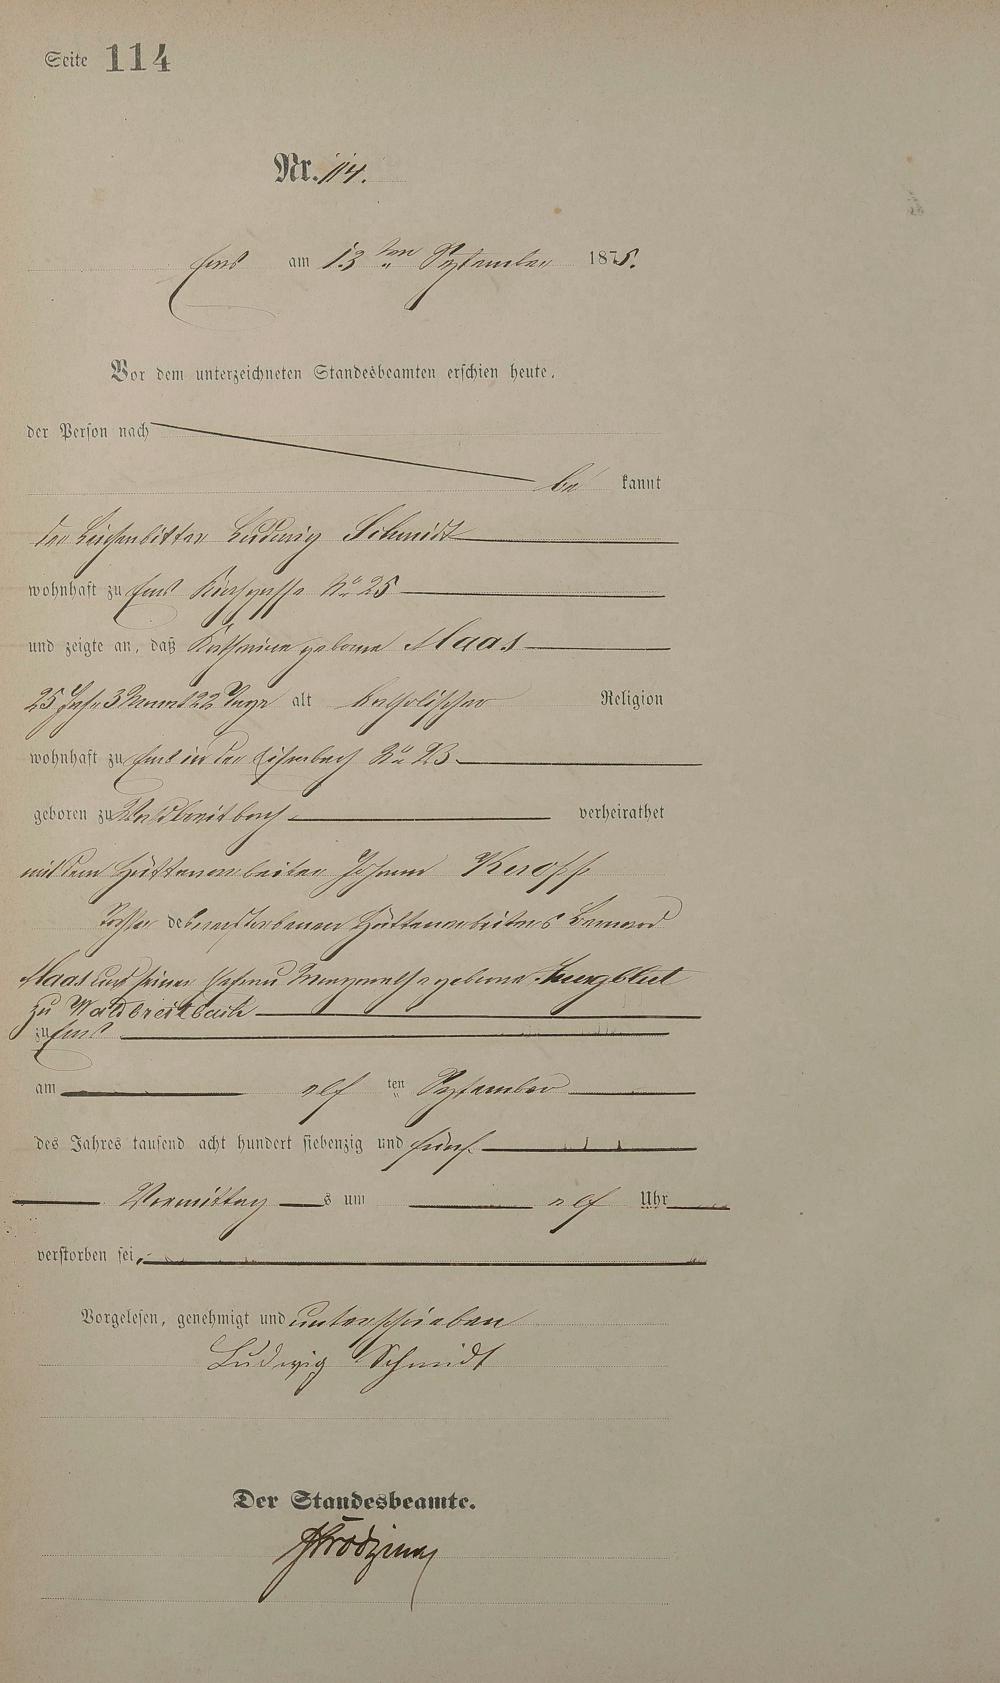 Seite 114
Nr. 114.
Ems am 13 ten September 1875.
Vor dem unterzeichneten Standesbeamten erschien heute,
der Person nach
be kannt
der Leichenbitter Ludwig Schmidt
wohnhaft zu Ems Kirchgasse No 25
und zeigte an, daß Katharina geborne Maas
25 Jahr 3 Monat 22 Tage alt katholischer Religion
wohnhaft zu Ems in der No 23
geboren zu Waldbreitbach verheirathet
mit dem Hüttenarbeiter Johann
Tochter des verstorbenen Hüttenarbeiters
Maas und seiner Ehefrau Margarethe geborne Jungblut
zu Waldbreitbach
zu Ems
am elf ten September
des Jahres tausend acht hundert siebenzig und fünf
Vormittag s um elf Uhr
verstorben sei.
Vorgelesen, genehmigt und unterschrieben
Ludwig Schmidt
Der Standesbeamte.